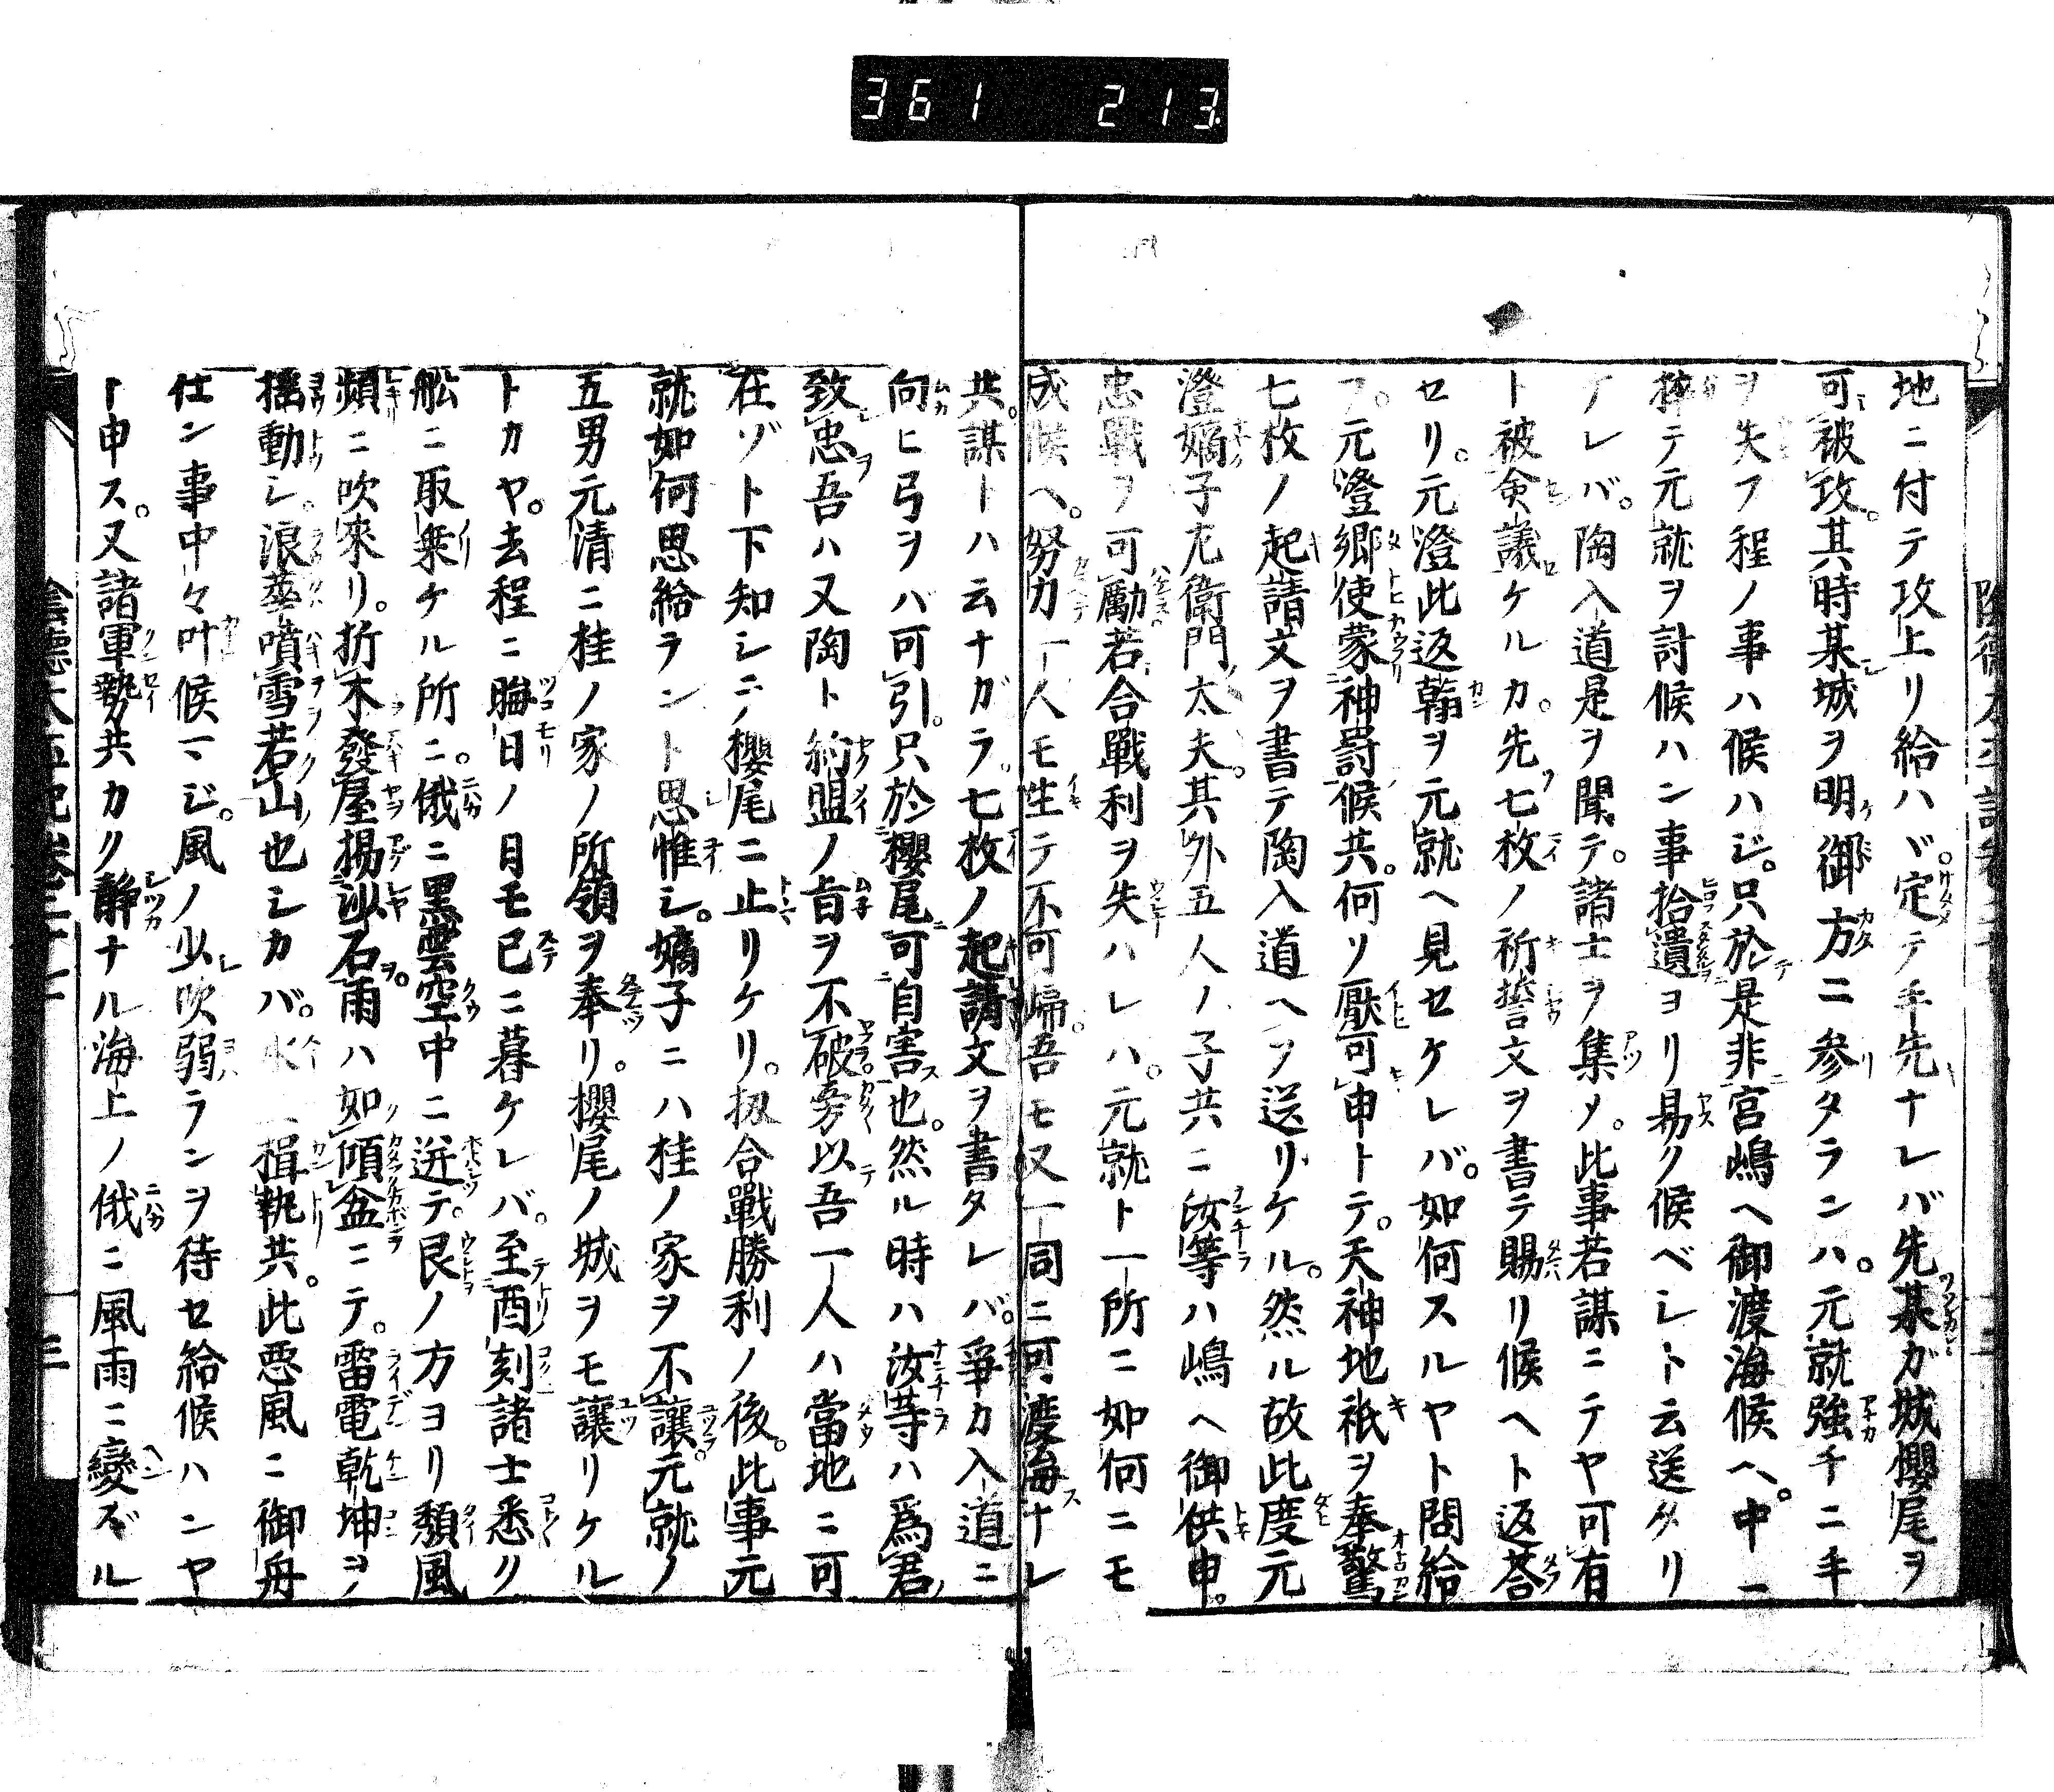 361 213
地ニ付テ攻上リ給ハヾ。定テ手先ナレバ先某ガ城櫻尾ヲ
可被攻。其時某城ヲ明御方ニ参タランハ。元就強チニ手
ヲ失フ程ノ事ハ候ハジ。只於是非宮嶋ヘ御渡海候ヘ。中ニ
挾テ元就ヲ討候ハン事拾遺ヨリ易ク候ベシト云送タリ
ケレバ。陶入道是ヲ聞テ。諸士ヲ集メ。此事若謀ニテヤ可有
ト被僉議ケルカ。先七枚ノ祈誓文ヲ書テ賜リ候ヘト返荅
セリ。元澄此返翰ヲ元就ヘ見セケレバ。如何スルヤト問給
フ。元澄郷使蒙神罸候共。何ソ厭可申トテ。天神地祇ヲ奉驚
七枚ノ起請文ヲ書テ陶入道ヘソ送リケル。然ル故此度元
澄嫡子左衛門太夫。其外五人ノ子共ニ汝等ハ嶋ヘ御供申。
忠戰ヲ可勵若合戰利ヲ失ハレハ。元就ト一所ニ如何ニモ
成候ヘ。努力一人モ生テ不可帰。吾モ又一同ニ可渡海ナレ
共。謀トハ云ナガラ。七枚ノ起請文ヲ書タレバ。爭カ入道ニ
向ヒ弓ヲハ可引。只於櫻尾可自害也。然ル時ハ汝等ハ爲君
致忠吾ハ又陶ト約盟ノ旨ヲ不破旁以吾一人ハ當地ニ可
在ゾト下知シテ櫻尾ニ止リケリ。扨合戰勝利ノ後。此事元
就如何思給ラント思惟シ。嫡子ニハ桂ノ家ヲ不讓。元就ノ
五男元清ニ桂ノ家ノ所領ヲ奉リ。櫻尾ノ城ヲモ讓リケル
トカヤ。去程ニ晦日ノ目モ已ニ暮ケレバ。至酉刻諸士悉ク
舩ニ取乗ケル所ニ。俄ニ黒雲空中ニ迸テ。艮ノ方ヨリ頽風
頻ニ吹來リ。折木發屋揚沙石。雨ハ如傾盆ニテ。雷電乾坤ヲ
揺動シ。浪華噴雪若山也シカバ。水 揖執共。此悪風ニ御舟
仕ン事中々叶候マジ。風ノ少吹弱ランヲ待セ給候ハンヤ
ト申ス。又諸軍勢共カク静ナル海上ノ俄ニ風雨ニ變ズル